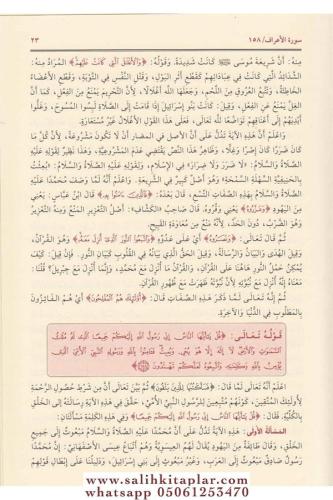 سورة الأعراف/ ١٥٨ ٢٣
منه: أنّ شريعة موسى ﷺ كانت شديدة. وقوله: ﴿وَالْأَغْلَالَ الَّتِي كَانَتْ عَلَيْهِمْ﴾ المراد منه:
الشدائد التي كانت في عباداتهم كقطع أثر البول، وقتل النفس في التوبة، وقطع الأعضاء
الخاطئة، وتتبع العروق من اللحم، وجعلها الله أغلالاً، لأن التحريم يمنع من الفعل، كما أن
الغل يمنع عن الفعل، وقيل: كانت بنو إسرائيل إذا قامت إلى الصلاة لبسوا المسوح، وغلوا
أيديهم إلى أعناقهم تواضعا لله تعالى، فعلى هذا القول الأغلال غير مستعارة.
واعلم أن هذه الآية تدل على أن الأصل في المضار أن لا تكون مشروعة، لأن كل ما
كان ضررا كان إصرا وغلا، وظاهر هذا النص يقتضي عدم المشروعية، وهذا نظير لقوله عليه
الصلاة والسلام: «لا ضرر ولا ضرار» في الإسلام، ولقوله عليه الصلاة والسلام: «بعثت
بالحنيفية السهلة السمحة» وهو أصل كبير في الشريعة. واعلم أنه لما وصف محمدا عليه
الصلاة والسلام بهذه الصفات التسع، قال بعده: ﴿فَالَّذِينَ آمَنُوا بِهِ﴾ قال ابن عباس: يعني
من اليهود ﴿وَعَزَّرُوهُ﴾ يعني وقروه. قال صاحب «الكشاف»: أصل التعزير المنع ومنه التعزير
وهو الضرب، دون الحد، لأنه منع من معاودة القبيح.
ثم قال تعالى: ﴿وَنَصَرُوهُ﴾ أي على عدوه ﴿وَاتَّبَعُوا النُّورَ الَّذِي أُنزِلَ مَعَهُ﴾ وهو القرآن،
وقيل الهدى والبيان والرسالة، وقيل الحق الذي بيانه في القلوب كبيان النور. فإن قيل: كيف
يمكن حمل النور هاهنا على القرآن، والقرآن ما أنزل مع محمد، وإنما أنزل مع جبريل؟ قلنا:
معناه إنه أنزل مع نبوته لأن نبوته ظهرت مع ظهور القرآن.
ثم إنه تعالى لما ذكر هذه الصفات قال: ﴿أُولَئِكَ هُمُ الْمُفْلِحُونَ﴾ أي هم الفائزون
بالمطلوب في الدنيا والآخرة.
قوله تعالى: ﴿قُلْ يَا أَيُّهَا النَّاسُ إِنِّي رَسُولُ اللَّهِ إِلَيْكُمْ جَمِيعًا الَّذِي لَهُ مُلْكُ
السَّمَاوَاتِ وَالْأَرْضِ لَا إِلَهَ إِلَّا هُوَ يُحْيِي وَيُمِيتُ فَآمِنُوا بِاللَّهِ وَرَسُولِهِ النَّبِيِّ الْأُمِّيِّ الَّذِي
يُؤْمِنُ بِاللَّهِ وَكَلِمَاتِهِ وَاتَّبِعُوهُ لَعَلَّكُمْ تَهْتَدُونَ﴾
اعلم أنه تعالى لما قال: ﴿فَسَأَكْتُبُهَا لِلَّذِينَ يَتَّقُونَ﴾ ثم بين تعالى أن من شرط حصول الرحمة
لأولئك المتقين، كونهم متبعين للرسول النبي الأمي، حقق في هذه الآية رسالته إلى الخلق
بالكلية. فقال: ﴿قُلْ يَا أَيُّهَا النَّاسُ إِنِّي رَسُولُ اللَّهِ إِلَيْكُمْ جَمِيعًا﴾ وفي هذه الكلمة مسألتان:
المسألة الأولى: هذه الآية تدل على أن محمدا عليه الصلاة والسلام مبعوث إلى جميع
الخلق، وقال طائفة من اليهود يقال لهم العيسوية وهم أتباع عيسى الأصفهاني: إن محمدا
رسول صادق مبعوث إلى العرب، وغير مبعوث إلى بني إسرائيل، ودليلنا على إبطال قولهم
www.salihkitaplar.com
whatsapp 05061253470